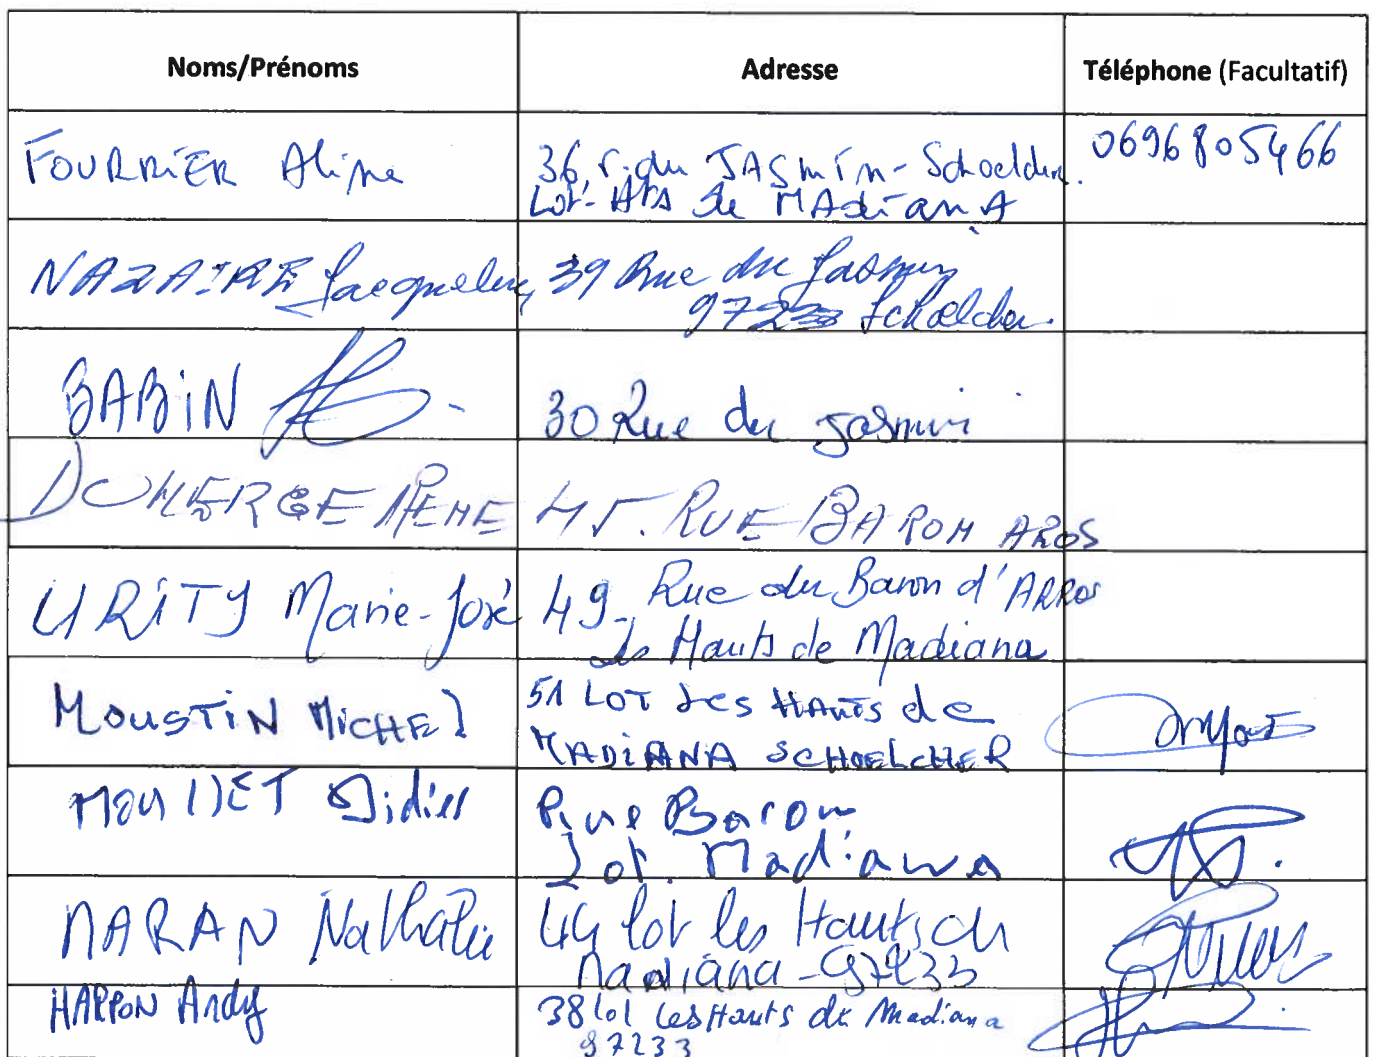 Noms/Prénoms Adresse Téléphone (Facultatif)
FOURRIER Aline 36, r. du JASmin - Schoelcher. 0696805466
Lot. Hts de MAdianA
NAZAIRE Jacqueline 39 Rue du Jasmin
97233 Schoelcher.
BABiN 30 Rue du Jasmin
DOMERGE 45. RUE BARON AROS
URiTY Marie-José 49 Rue du Baron d'ARROS
Ls Hauts de Madiana
MOUSTiN MiCHEl 51 LOT Les HAUTS de
MADIANA SCHOELCHER
Didier Rue Baron
Lot. Madiana
NARAN Nathalie 44 lot les Hauts de
Madiana - 97233
HARPON Andy 38 lot Les Hauts de Madiana
97233